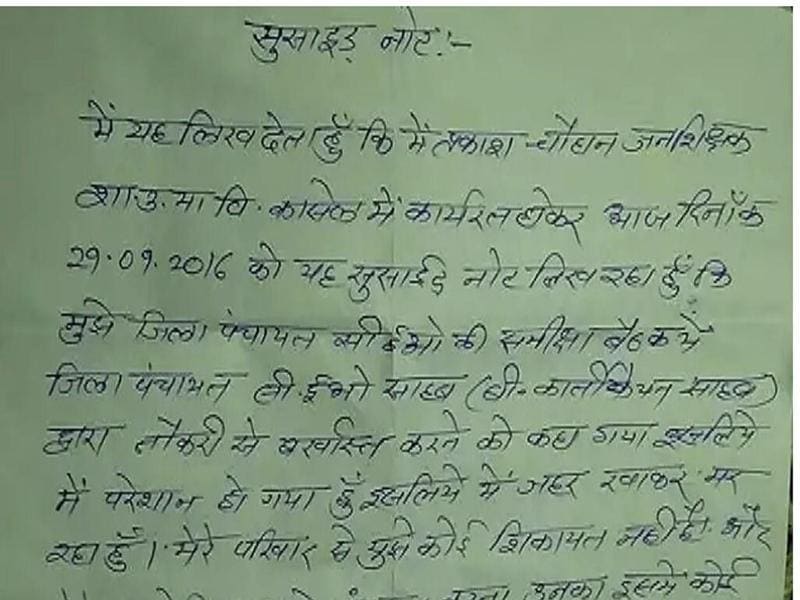 सुसाइड नोट:-
में यह लिख देता हुँ कि में प्रकाश चौहान जनशिक्षक
शा.उ.मा वि. कासेल में कार्यरत होकर आज दिनाँक
29.09.2016 को यह सुसाईड नोट लिख रहा हुँ कि
मुझे जिला पंचायत सीईओ की समीक्षा बैठक में
जिला पंचायत सी.ईओ साहब (डी. कार्तीकेयन साहब)
द्वारा नौकरी से बर्खास्त करने को कहा गया इसलिये
में परेशान हो गया हुँ इसलिये में जहर खाकर मर
रहा हुँ। मेरे परिवार से मुझे कोई शिकायत नहीं है। और
उनका इसमें कोई